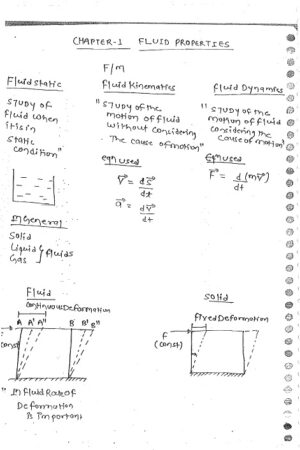 CHAPTER-1 FLUID PROPERTIES
F/M
Fluid static
study of
fluid when
it is in
static
condition"
Fluid Kinematics
" study of the
motion of fluid
without considering
The cause of motion"
eqn used
V⃗ = dS⃗/dt
a⃗ = dv⃗/dt
Fluid Dynamics
" study of the
motion of fluid
considering the
cause of motion"
eqn used
F⃗ = d/dt (mv⃗)
In General
Solid
Liquid } fluids
Gas
Fluid
continuous Deformation
A A' A" B B' B"
(const)
" In fluid Rate of
Deformation
is important
Solid
fixed Deformation
F
(const)